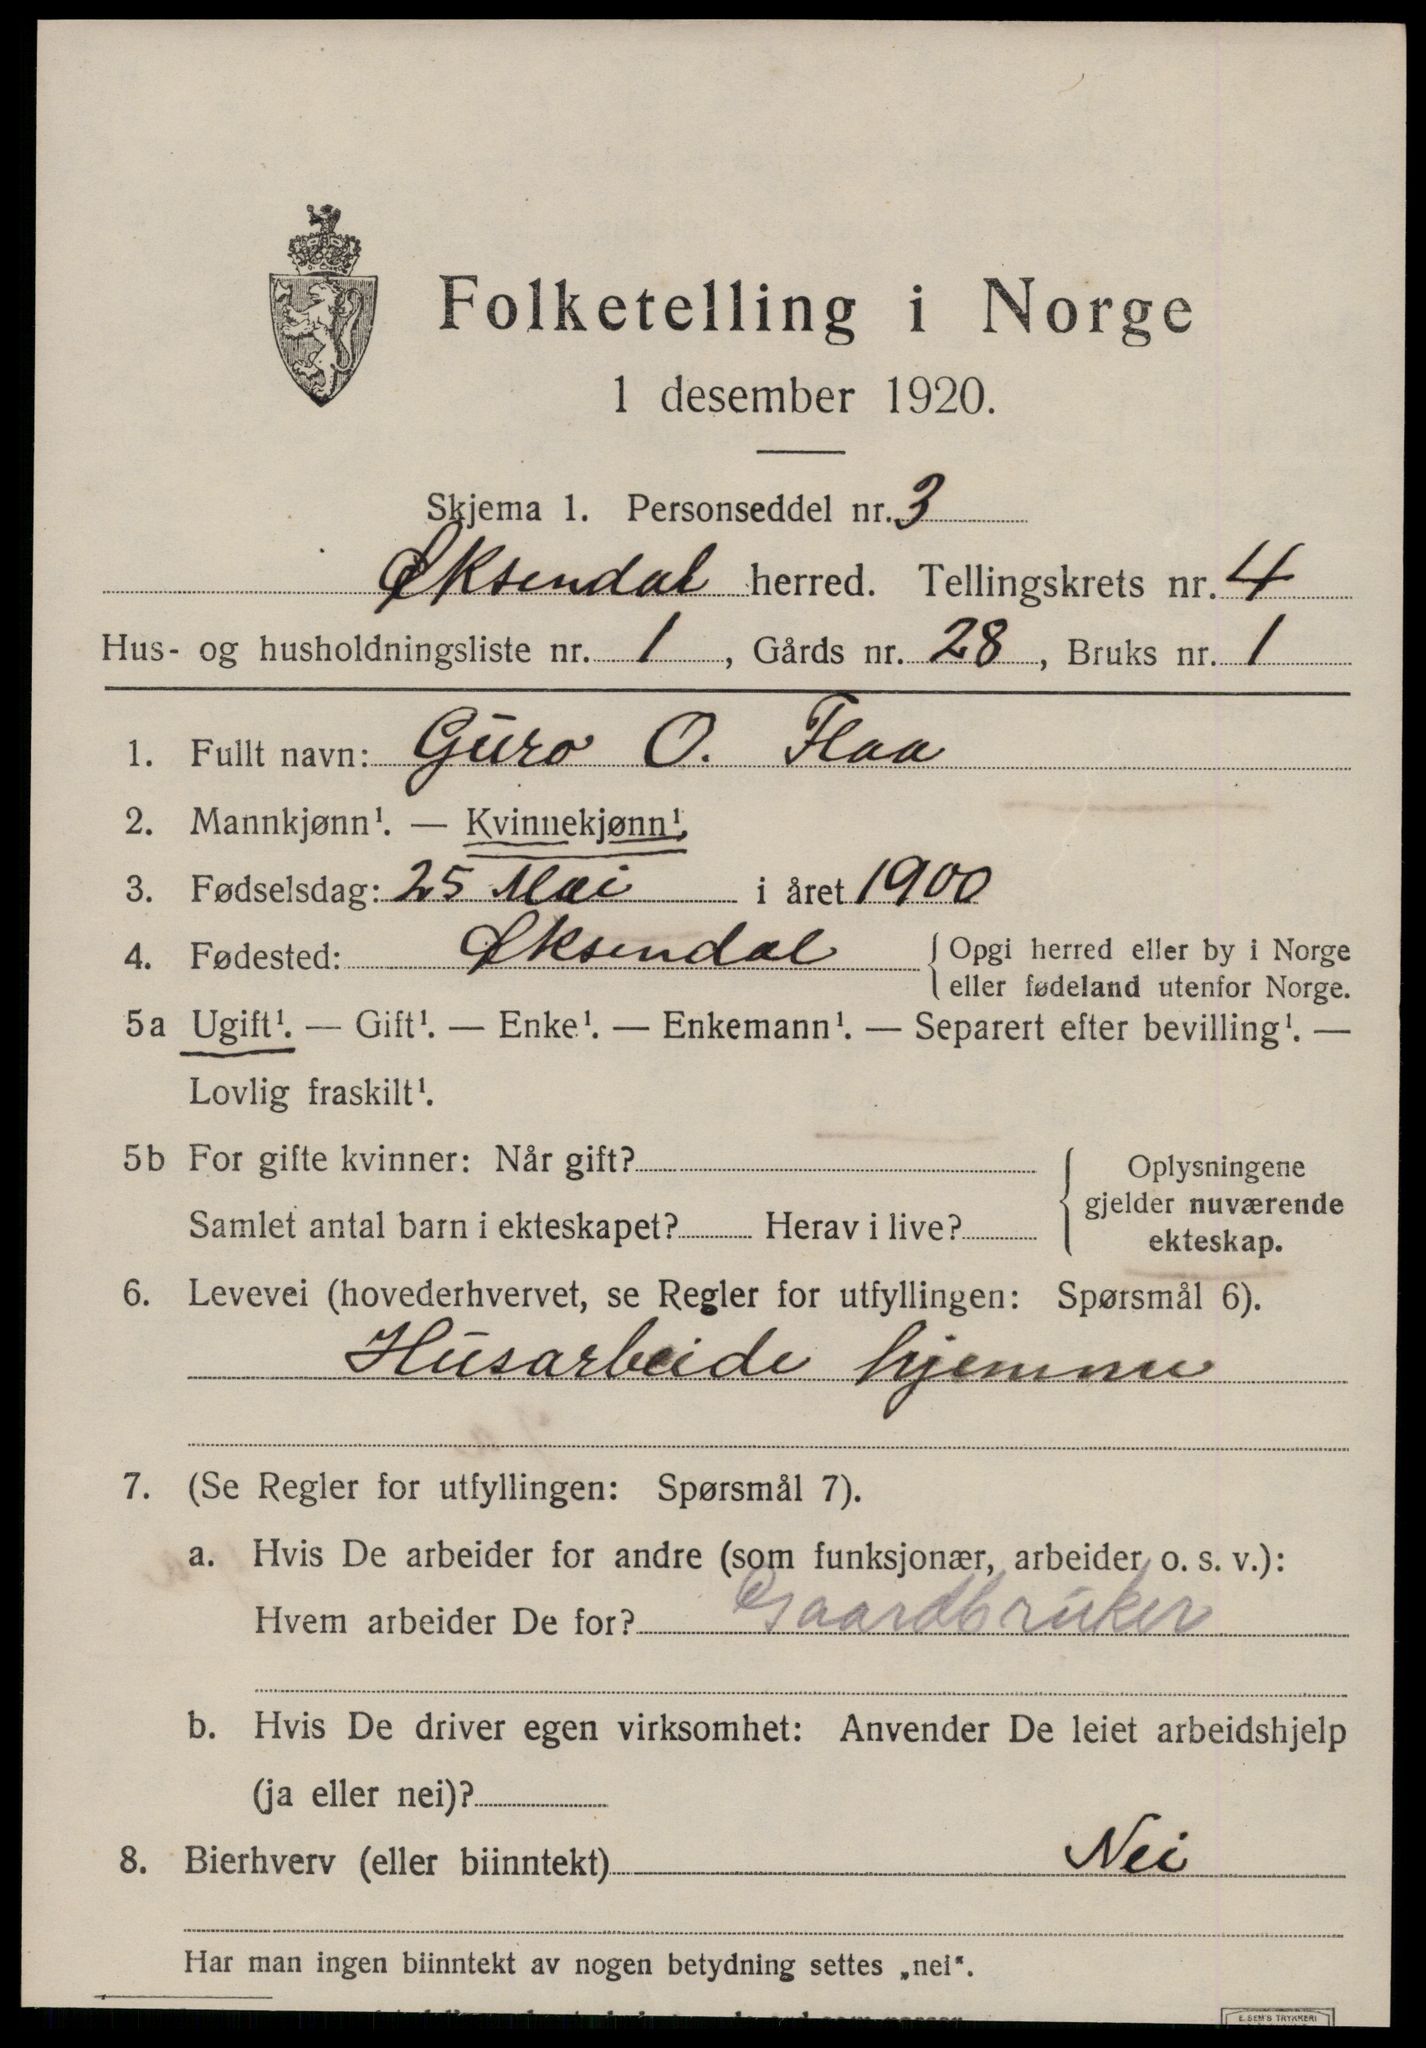 Folketelling i Norge
1 desember 1920.
Skjema 1. Personseddel nr. 3
Øksendal herred. Tellingskrets nr. 4
Hus- og husholdningsliste nr. 1, Gårds nr. 28, Bruks nr. 1
1. Fullt navn: Guro O. Flaa
2. Mannkjønn¹. — Kvinnekjønn¹.
3. Fødselsdag: 25 Mai i året 1900
4. Fødested: Øksendal {Opgi herred eller by i Norge
eller fødeland utenfor Norge.
5a Ugift¹. — Gift¹. — Enke¹. — Enkemann¹. — Separert efter bevilling¹. —
Lovlig fraskilt¹.
5b For gifte kvinner: Når gift?
Samlet antal barn i ekteskapet? Herav i live?
Oplysningene
gjelder nuværende
ekteskap.
6. Levevei (hovederhvervet, se Regler for utfyllingen: Spørsmål 6).
Husarbeide hjemme
7. (Se Regler for utfyllingen: Spørsmål 7).
a. Hvis De arbeider for andre (som funksjonær, arbeider o. s. v.):
Hvem arbeider De for? Gaardbruker
b. Hvis De driver egen virksomhet: Anvender De leiet arbeidshjelp
(ja eller nei)?
8. Bierhverv (eller biinntekt) Nei
Har man ingen biinntekt av nogen betydning settes „nei“.
E. SEM'S TRYKKERI